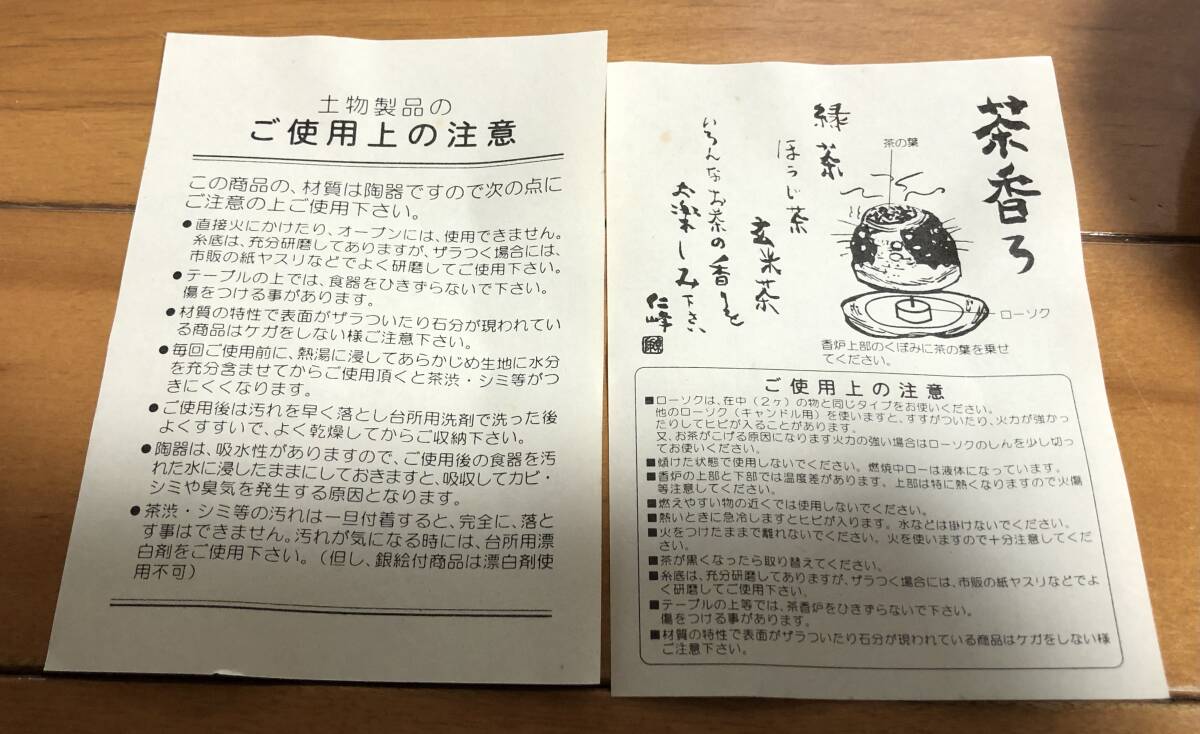 土物製品の
ご使用上の注意
この商品の、材質は陶器ですので次の点に
ご注意の上ご使用下さい。
●直接火にかけたり、オーブンには、使用できません。
糸底は、充分研磨してありますが、ザラつく場合には、
市販の紙ヤスリなどでよく研磨してご使用下さい。
●テーブルの上では、食器をひきずらないで下さい。
傷をつける事があります。
●材質の特性で表面がザラついたり石分が現われてい
る商品はケガをしない様ご注意下さい。
●毎回ご使用前に、熱湯に浸してあらかじめ生地に水分
を充分含ませてからご使用頂くと茶渋・シミ等がつ
きにくくなります。
●ご使用後は汚れを早く落とし台所用洗剤で洗った後
よくすすいで、よく乾燥してからご収納下さい。
●陶器は、吸水性がありますので、ご使用後の食器を汚
れた水に浸したままにしておきますと、吸収してカビ・
シミや臭気を発生する原因となります。
●茶渋・シミ等の汚れは一旦付着すると、完全に、落と
す事はできません。汚れが気になる時には、台所用漂
白剤をご使用下さい。(但し、銀絵付商品は漂白剤使
用不可)
茶香ろ
茶の葉
緑茶
ほうじ茶
玄米茶
いろんなお茶の香りを
お楽しみ下さい
仁峰
ローソク
香炉上部のくぼみに茶の葉を乗せ
てください。
ご使用上の注意
■ローソクは、在中(2ヶ)の物と同じタイプをお使いください。
他のローソク(キャンドル用)を使いますと、すすがついたり、火力が強かっ
たりしてヒビが入ることがあります。
又、お茶がこげる原因になります火力の強い場合はローソクのしんを少し切っ
てお使いください。
■傾けた状態で使用しないでください。燃焼中ローは液体になっています。
■香炉の上部と下部では温度差があります。上部は特に熱くなりますので火傷
等注意してください。
■燃えやすい物の近くでは使用しないでください。
■熱いときに急冷しますとヒビが入ります。水などは掛けないでください。
■火をつけたままで離れないでください。火を使いますので十分注意してくだ
さい。
■茶が黒くなったら取り替えてください。
■糸底は、充分研磨してありますが、ザラつく場合には、市販の紙ヤスリなどでよ
く研磨してご使用下さい。
■テーブルの上等では、茶香炉をひきずらないで下さい。
傷をつける事があります。
■材質の特性で表面がザラついたり石分が現われている商品はケガをしない様
ご注意下さい。